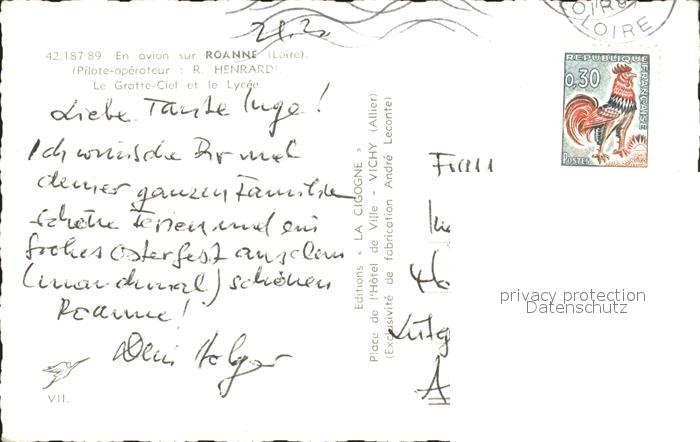 21.3.
LOIRE
42.187 89 En avion sur ROANNE (Loire).
(Pilote-opérateur : R. HENRARD).
Le Gratte-Ciel et le Lycée
Liebe Tante Inge!
Ich wünsche Dir und
deiner ganzen Familie
schöne Ferien und ein
frohes Osterfest aus dem
(manchmal) schönen
Roanne!
Dein Holger
VII.
Editions « LA CIGOGNE »
Place de l'Hôtel de Ville - VICHY (Allier)
(Exclusivité de fabrication André Leconte)
REPUBLIQUE
FRANÇAISE
0,30
POSTES
Frau
privacy protection
Datenschutz